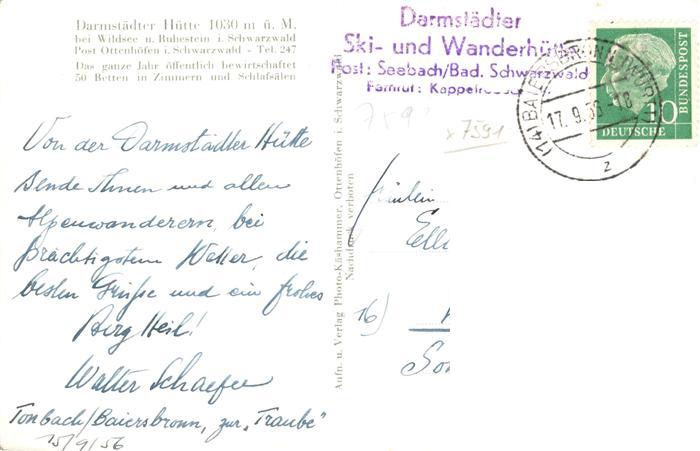 Darmstädter Hütte 1030 m ü. M.
bei Wildsee u. Ruhestein i. Schwarzwald
Post Ottenhöfen i. Schwarzwald - Tel. 247
Das ganze Jahr öffentlich bewirtschaftet
50 Betten in Zimmern und Schlafsälen
Von der Darmstädter Hütte
sende Ihnen und allen
Alpenwanderern, bei
prächtigstem Wetter, die
besten Grüße und ein frohes
Berg Heil!
Walter Schaefer
Tonbach/Baiersbronn, zur „Traube"
15/9/56
Aufn. u. Verlag Photo-Käshammer, Ottenhöfen i. Schwarzwald
Nachdruck verboten
Darmstädter
Ski- und Wanderhütte
Post: Seebach/Bad. Schwarzwald
Fernruf: Kappelrodeck
x 7591
Fräulein
Elli
16)
So
(14b) BAIERSBRONN
17. 9. 56-18
z
10
DEUTSCHE
BUNDESPOST